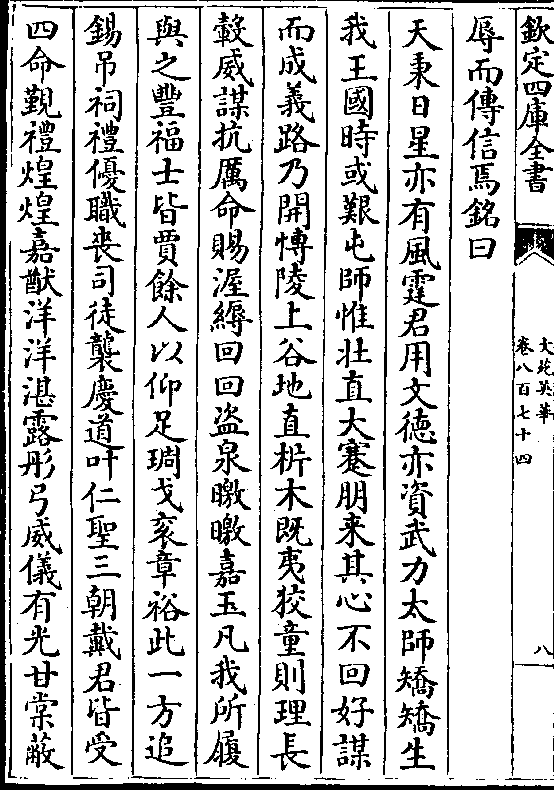 欽定四庫全書
文苑英華
卷八百七十四
八
辱而傳信焉銘曰
天秉日星亦有風霆君用文德亦資武力太師矯矯生
我王國時或艱屯師惟壯直大蹇朋来其心不回好謀
而成義路乃開博陵上谷地直析木既夷狡童則理長
轂威謀抗厲命賜渥縟回回盗泉曒曒嘉玉凡我所履
與之豐福士皆賈餘人以仰足琱戈衮章裕此一方追
錫吊祠禮優職喪司徒襲慶道叶仁聖三朝戴君皆受
四命覲禮煌煌嘉猷洋洋湛露彤弓威儀有光甘棠蔽